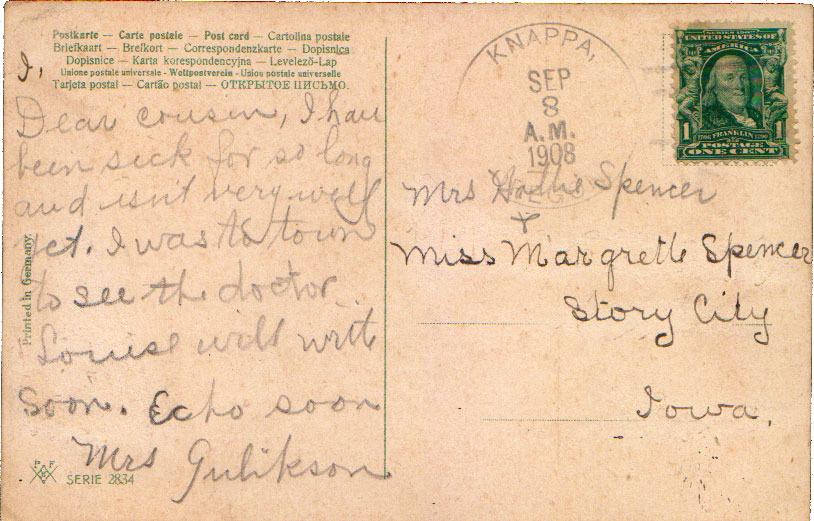 Postkarte — Carte postale — Post card — Cartolina postale
Briefkaart — Brefkort — Correspondenzkarte — Dopisnica
Dopisnice — Karta korespondencyjna — Levelező-Lap
Unione postale universale - Weltpostverein - Union postale universelle
Tarjeta postal — Cartão postal — ОТКРЫТОЕ ПИСЬМО.
Dear cousin, I have
been sick for so long
and isn't very well
yet. I was to town
to see the doctor.
Louise will write
soon. Echo soon
Mrs Gulikson
Printed in Germany.
P F
SERIE 2834
KNAPPA,
SEP
8
A.M.
1908
OREGON
SERIES 1902
UNITED STATES OF
AMERICA
1 1
1706 FRANKLIN 1790
POSTAGE
ONE CENT
Mrs Spencer
Miss Margrette Spencer
Story City
Iowa.